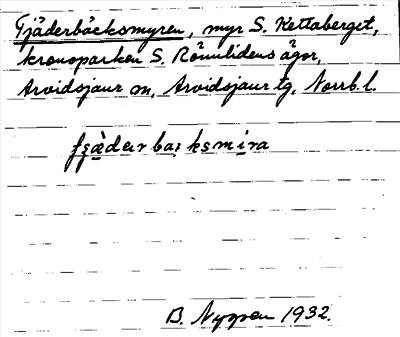 Fjäderbäcksmyren, myr S. Kettaberget,
kronoparken S. Rönnlidens ägor,
Arvidsjaur sn, Arvidsjaur tg, Norrb. l.
B. Nygren 1932.